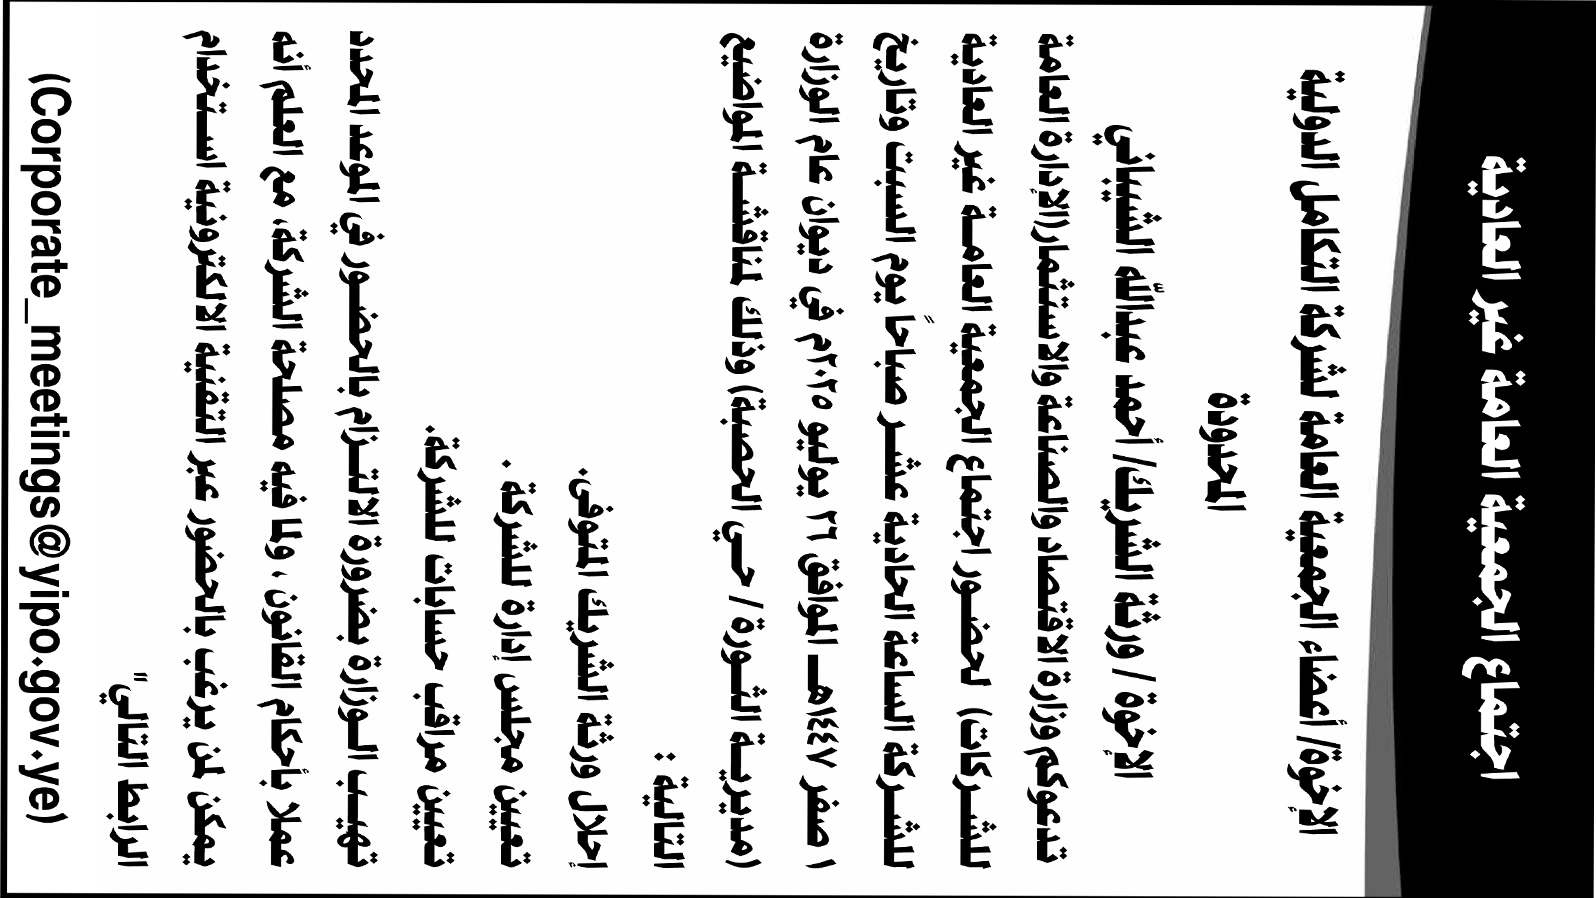 اجتماع الجمعية العامة غير العادية
الإخوة/ أعضاء الجمعية العامة لشركة التكامل الدولية
المحدودة
الإخوة / ورثة الشريك/ أحمد عبدالله الشيباني
تدعوكم وزارة الاقتصاد والصناعة والاستثمار(الإدارة العامة
للشركات) لحضور اجتماع الجمعية العامة غير العادية
للشركة الساعة الحادية عشر صباحًا يوم السبت وتاريخ
١ صفر ١٤٤٧هـ الموافق ٢٦ يوليو ٢٠٢٥م في ديوان عام الوزارة
(مديرية الثورة / حي الحصبة) وذلك لمناقشة المواضيع
التالية :
إحلال ورثة الشريك المتوفى.
تعيين مجلس إدارة للشركة .
تعيين مراقب حسابات للشركة.
تهيب الوزارة بضرورة الالتزام بالحضور في الموعد المحدد
عملا بأحكام القانون ، ولما فيه مصلحة الشركة، مع العلم أنه
يمكن لمن يرغب بالحضور عبر التقنية الالكترونية استخدام
الرابط التالي"
(Corporate_meetings@yipo.gov.ye)